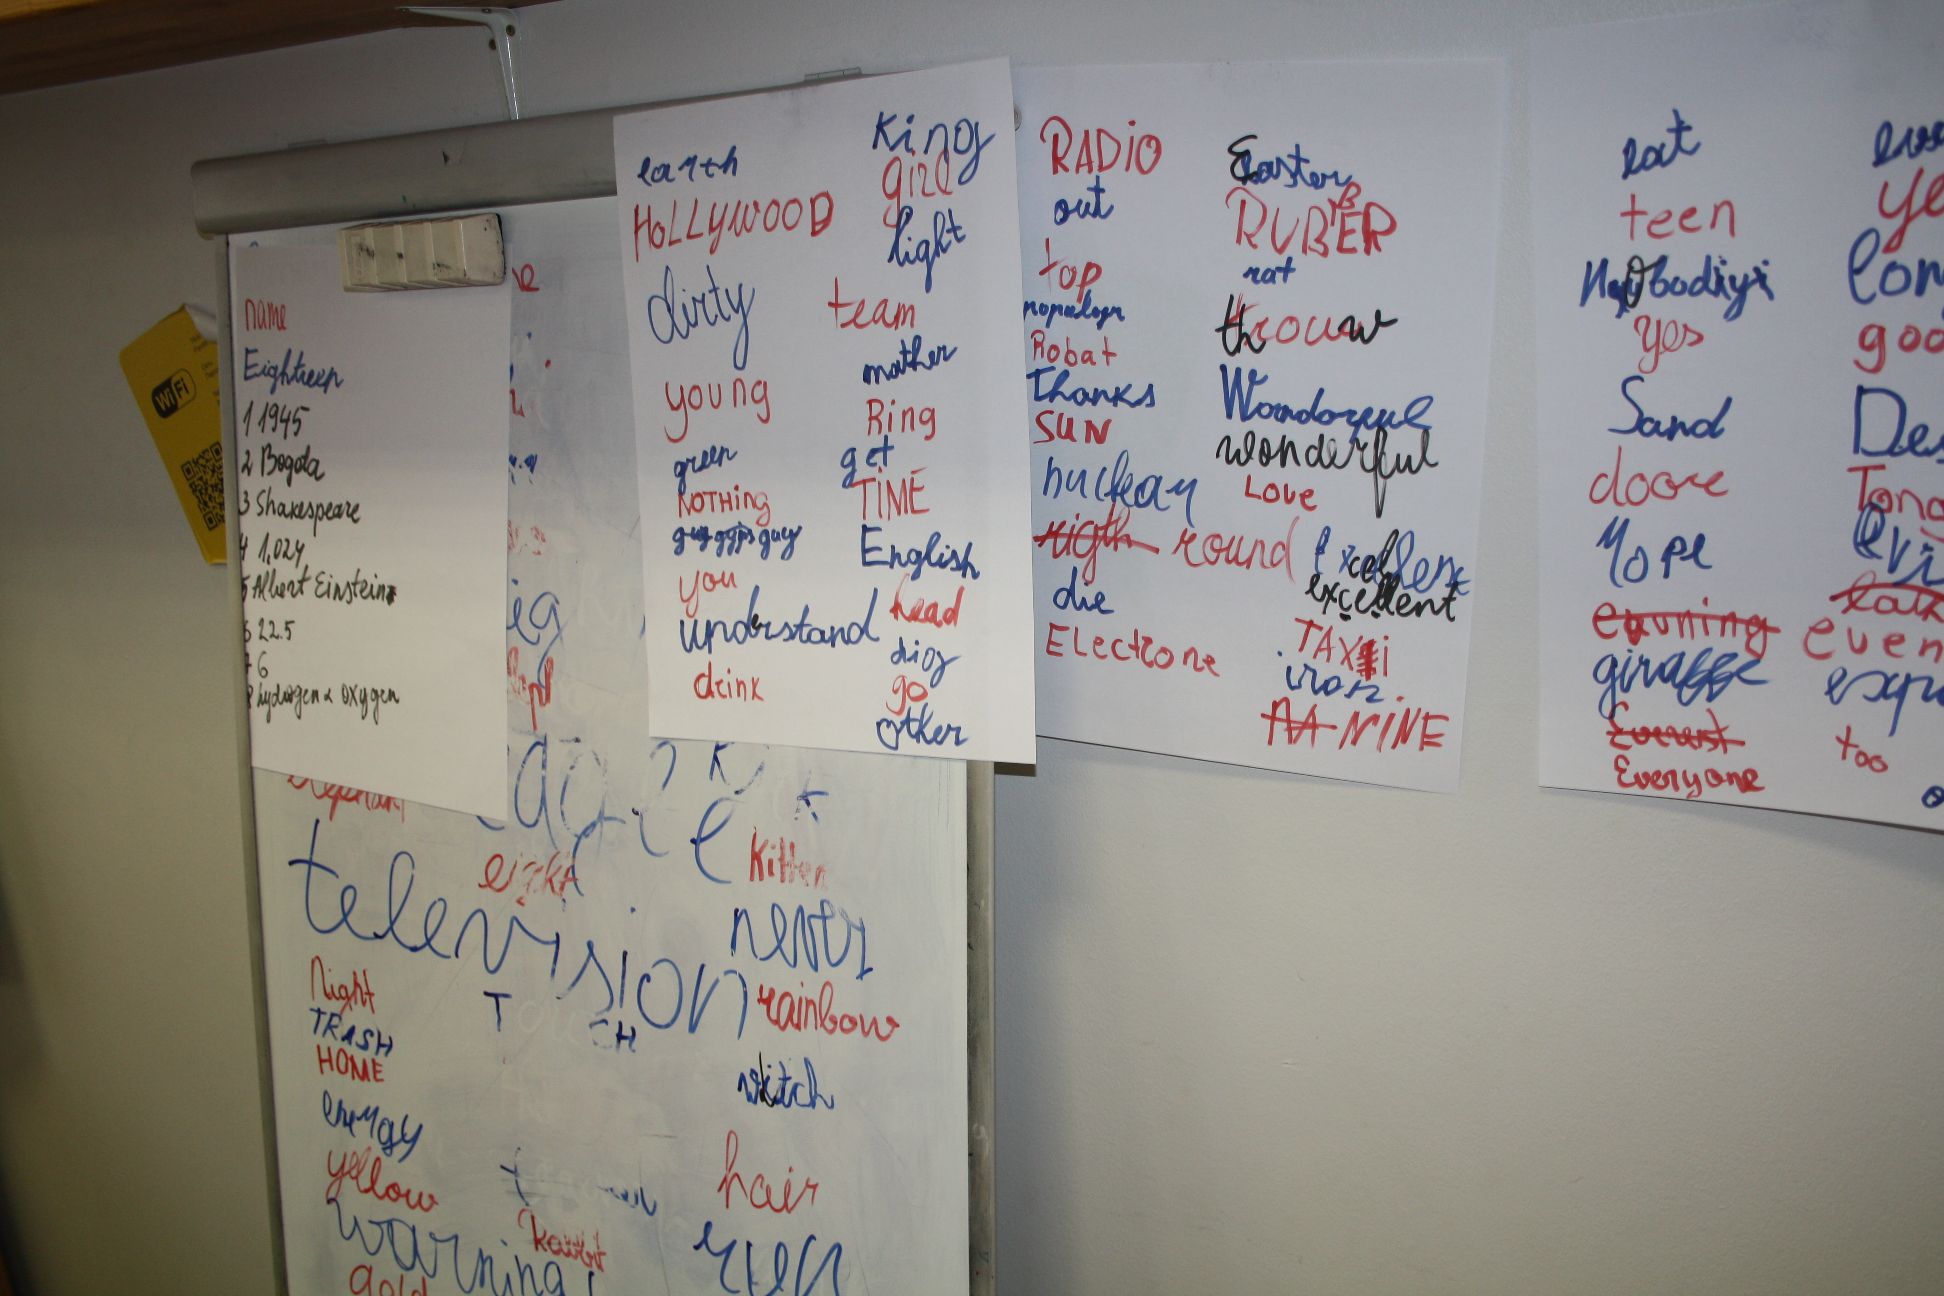 WiFi
name
Eighteen
1 1945
2 Bogota
3 Shakespeare
4 1,024
5 Albert Einstein
6 22.5
7 6
8 hydrogen & oxygen
earth
HOLLYWOOD
dirty
young
green
NOTHING
guy
you
understand
drink
King
girl
light
team
mother
Ring
get
TIME
English
head
dog
go
other
RADIO
out
top
Robat
Thanks
SUN
nuclear
rigth round
die
Electrone
Easter
RUBBER
rat
throuw
Wondorful
wonderful
Love
excellent
TAXI
iron
NINE
eat
teen
yes
Sand
doore
Nope
evuning
giraffe
Everest
Everyone
ye
lon
goo
Des
Tong
evi
even
exp
too
elephant
television
eight
Kitten
never
Night
TOUCH
rainbow
TRASH
HOME
witch
energy
yellow
hair
warning!
run
gold